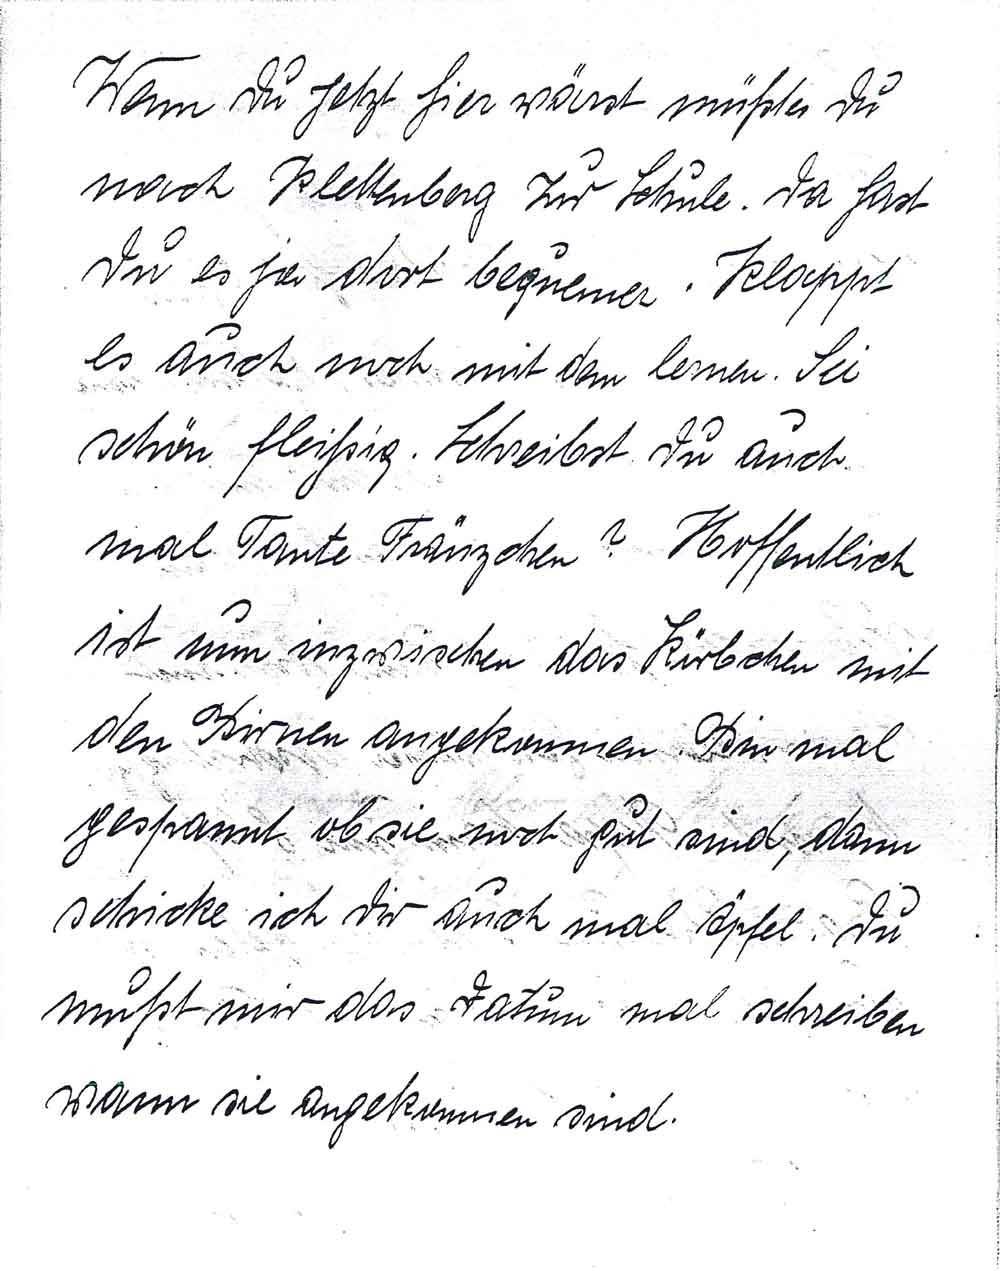 Wenn Du jetzt hier wärst müßtes Du
nach Klettenberg zur Schule. Da hast
Du es ja dort bequemer. Klappt
es auch noch mit dem lernen. Sei
schön fleißig. Schreibst Du auch
mal Tante Fränzchen? Hoffentlich
ist nun inzwischen das Körbchen mit
den Birnen angekommen. Bin mal
gespannt ob sie noch gut sind, dann
schicke ich Dir auch mal Äpfel. Du
mußt mir das Datum mal schreiben
wann sie angekommen sind.